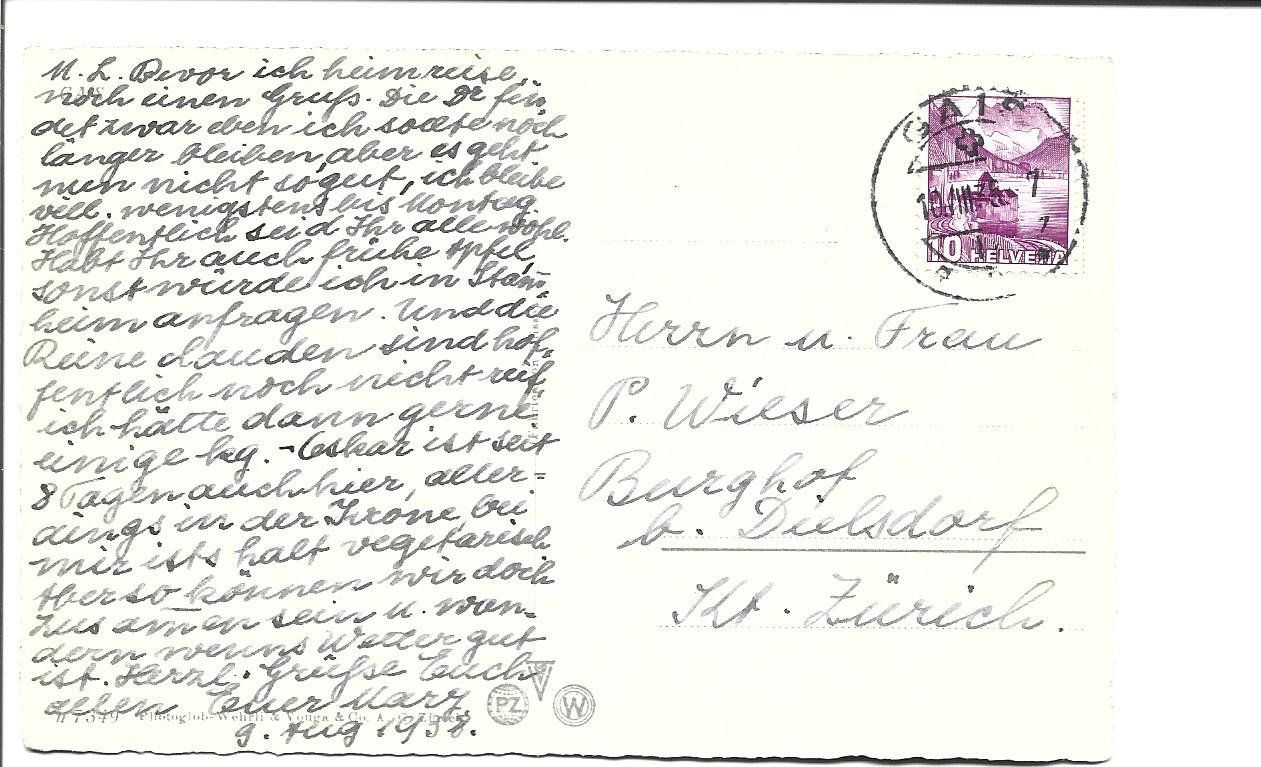 M. L. Bevor ich heimreise,
noch einen Gruß. Die Dr fin
det zwar eben ich sollte noch
länger bleiben, aber es geht
nun nicht so gut, ich bleibe
vill. wenigstens bis Montag
Hoffentlich seid Ihr alle wohl.
Habt Ihr auch frühe Äpfel,
sonst würde ich in Stam̄
heim anfragen. Und die
Reine clauden sind hof,
fentlich noch nicht reif
ich hätte dann gerne
einige kg. - Oskar ist seit
8 Tagen auch hier, aller=
dings in der Krone, bei
mir ists halt vegetarisch
Aber so können wir doch
zusam̄en sein u. wan-
dern wenns Wetter gut
ist. Herzl. Grüße Euch
allen Euer Mary
9. Aug 1938.
7349 Photoglob-Wehrli & Vouga & Co. A. G. Zürich
PZ
W
GAIS
10.VIII.38 - 7
10 HELVETIA
Herrn u. Frau
P. Wieser
Burghof
b. Dielsdorf
Kt. Zürich.